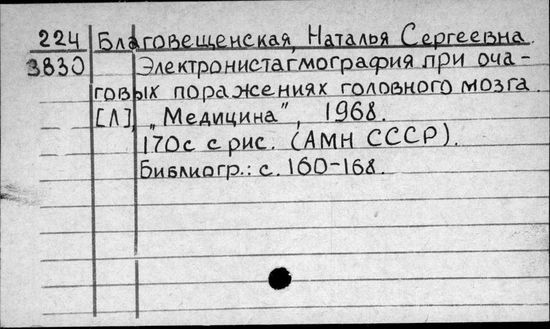 224 Благовещенская, Наталья Сергеевна.
3830 Электронистагмография при оча-
говых поражениях головного мозга.
[Л], „Медицина", 1968.
170с с рис. (АМН СССР).
Библиогр.: с. 160-168.